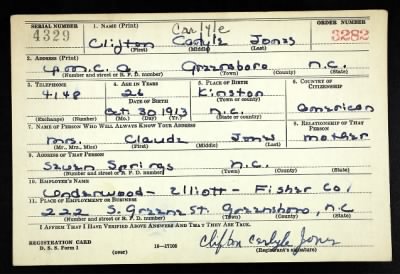 SERIAL NUMBER
1. NAME (Print)
ORDER NUMBER
Carlyle
4329
Clifton Carlyle Jones
3282
(First) (Middle) (Last)
2. ADDRESS (Print)
Y.M.C.A. Greensboro N.C.
(Number and street or R. F. D. number) (Town) (County) (State)
3. TELEPHONE
4. AGE IN YEARS
5. PLACE OF BIRTH
6. COUNTRY OF CITIZENSHIP
4148
26
Kinston
DATE OF BIRTH
(Town) (County)
Oct 30 1913
N.C.
American
(Exchange) (Number)
(Mo.) (Day) (Yr.)
(State) (Country)
7. NAME OF PERSON WHO WILL ALWAYS KNOW YOUR ADDRESS
8. RELATIONSHIP OF THAT PERSON
Mrs. Claude Jones
Mother
(Mr., Mrs., Miss) (First) (Middle) (Last)
9. ADDRESS OF THAT PERSON
Seven Springs N.C.
(Number and street or R. F. D. number) (Town) (County) (State)
10. EMPLOYER'S NAME
Underwood - Elliott - Fisher Co.
11. PLACE OF EMPLOYMENT OR BUSINESS
222 S. Greene St. Greensboro, N.C
(Number and street or R. F. D. number) (Town) (County) (State)
I AFFIRM THAT I HAVE VERIFIED ABOVE ANSWERS AND THAT THEY ARE TRUE.
REGISTRATION CARD
D. S. S. Form 1
(over)
16—17105
Clifton Carlyle Jones
(Registrant's signature)